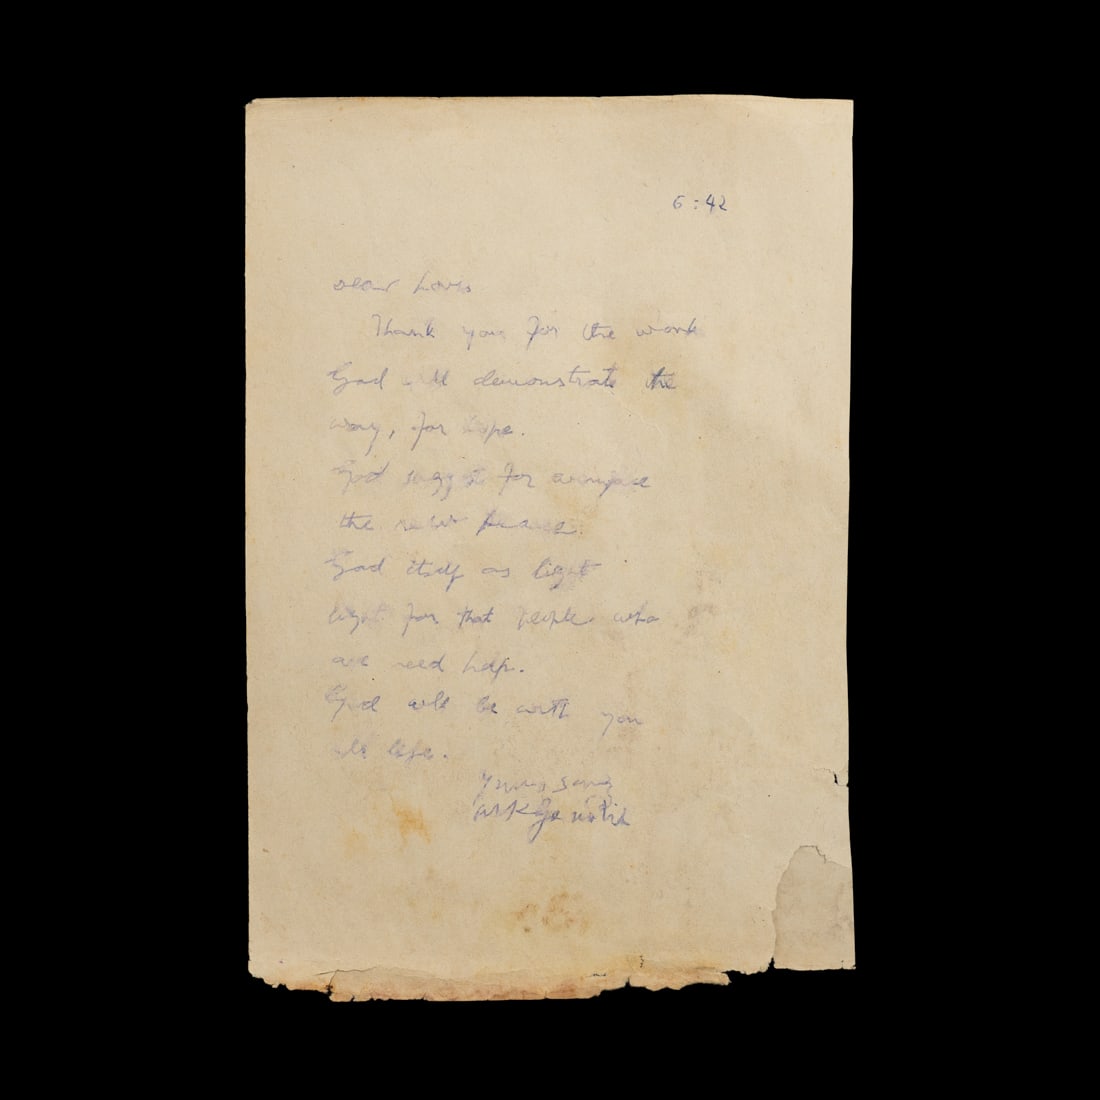 6:42
Dear Louis
Thank you for the work
God will demonstrate the
way, for hope.
God suggest for
the new
God itself as light
light for that people who
are need help.
God will be with you
life.
Yours